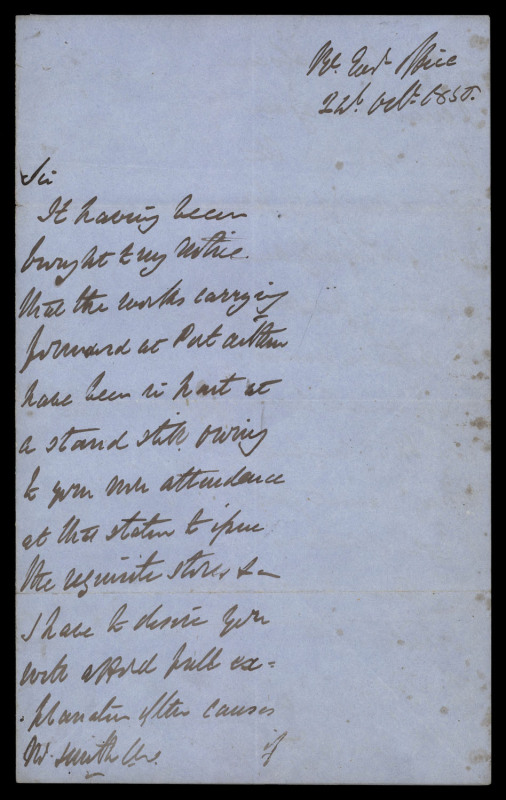 Rl. Engr. Office
22d. Octr. 1850.
Sir
It having been
brought to my notice
that the works carrying
forward at Port Arthur
have been in part at
a stand still owing
to your non attendance
at that station to issue
the requisite stores &c
I have to desire you
will afford full ex=
planation of the causes
Mr. Smith
of